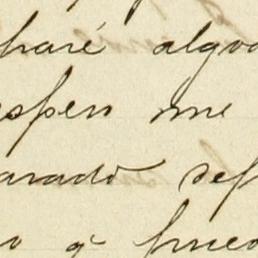 haré algu
espero me
arado def
o q̃ pued